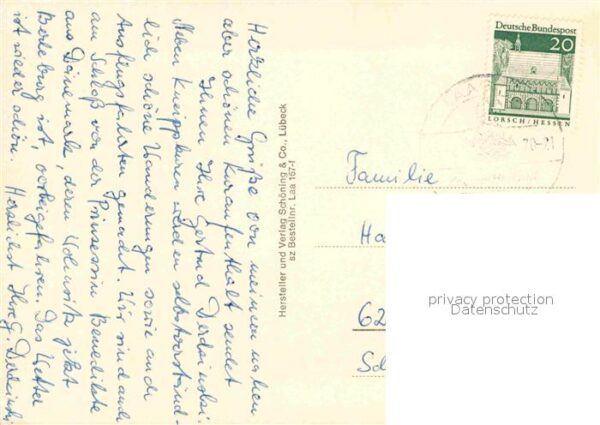 Herzliche Grüße von meinem nahen
aber schönen Kuraufenthalt sendet
Ihnen Ihre Gertrud
Neben Kneippkuren werden selbstverständ-
lich schöne Wanderungen sowie auch
Ausflugsfahrten gemacht. Wir sind auch
am Schloß von der Prinzessin Benedikte
aus Dänemark, deren Wohnsitz jetzt
Berleburg ist, vorbeigefahren. Das Wetter
ist wieder schön. Herzlichst Ihre G.
Hersteller und Verlag Schöning & Co., Lübeck
sz Bestellnr. Laa 157-f
Deutsche Bundespost
20
LORSCH/HESSEN
LAA
Familie
Ha
62
Sc
privacy protection
Datenschutz